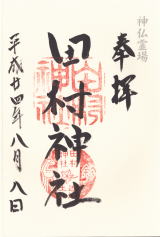 神仏霊場
奉拝
田村神社
平成廿四年八月八日